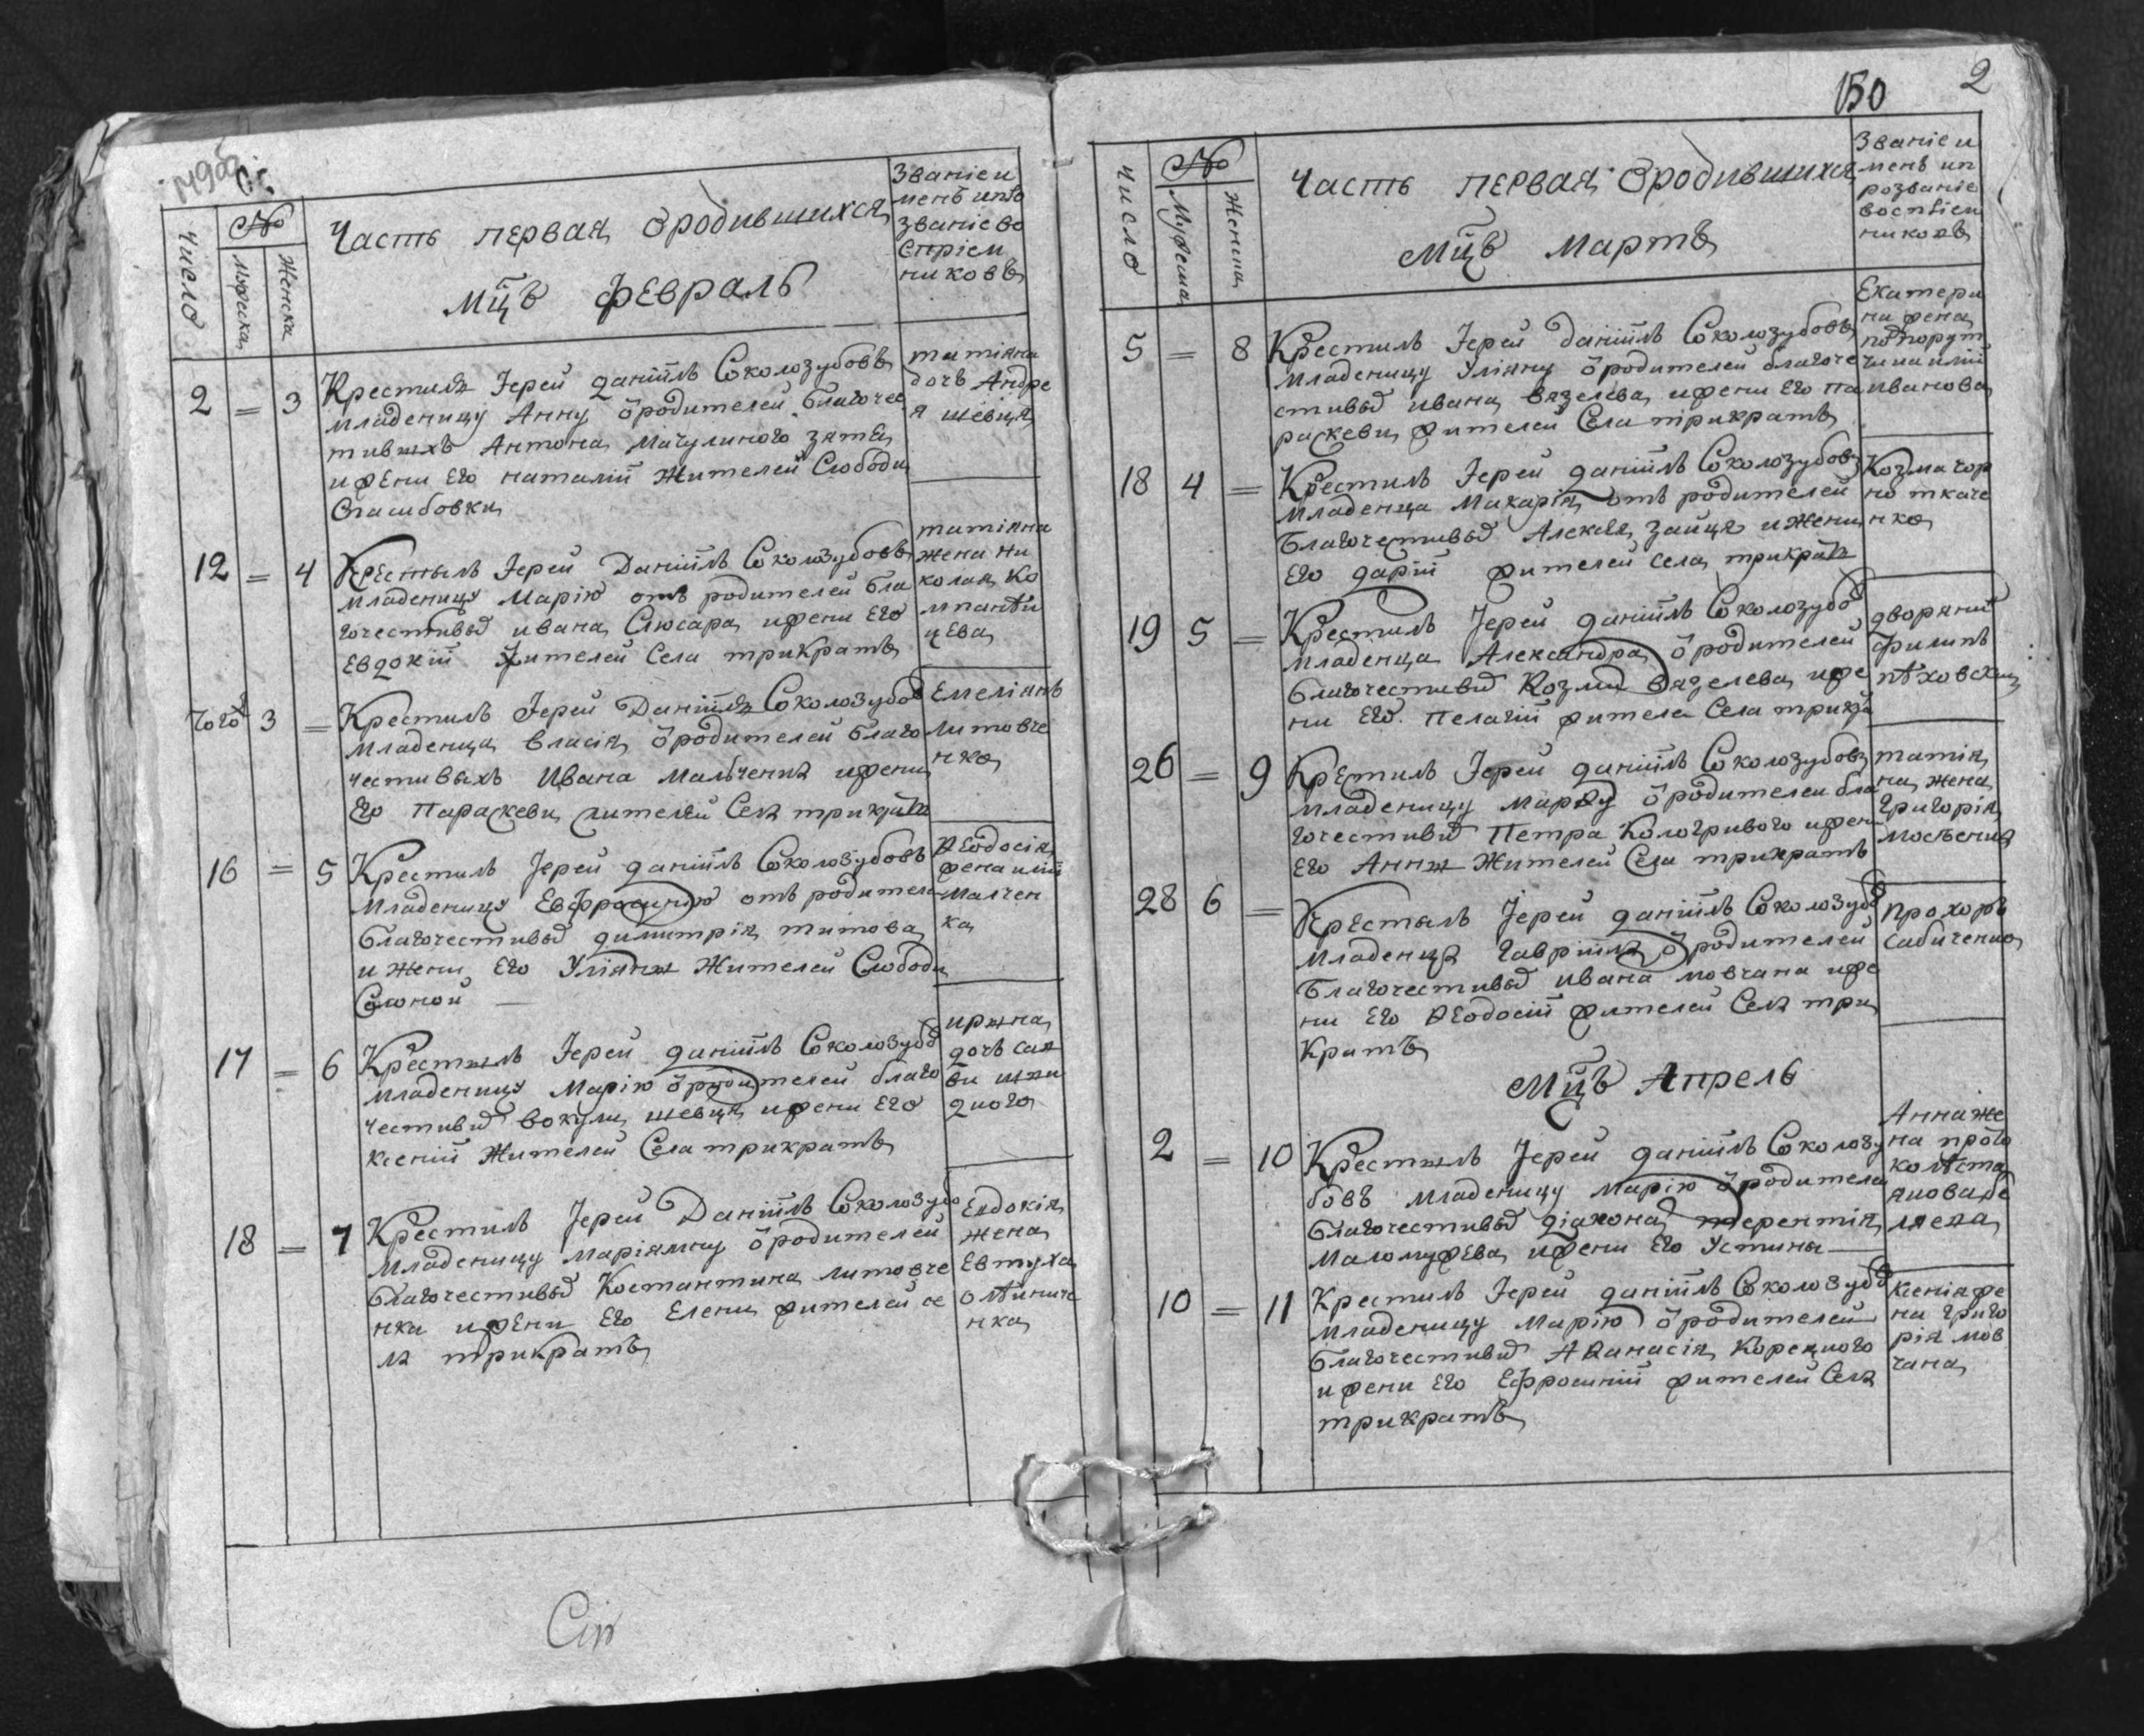 Число
№
Мужеска
Женска
Часть первая ѿ родившихся
Мцъ февраль
Званіе и
менъ и про
званіе во
спріем
никовъ
2 = 3
Крестилъ Іерей Даніилъ Соколозубовъ
младеницу Анну ѿ родителей благочес
тивыхъ Антона Мачулиного зятя
и жени его наталіи жителей Слободи
татіяна
дочъ Андре
я шевця
12 = 4
Крестылъ Іерей Даніилъ Соколозубовъ
младеницу Марію отъ родителей бла
гочестивых ивана Слюсара и жени его
Евдокіи жителей Села трикратъ
татіяна
жена ни
колая ко
мпанѣй
цева
того 3 =
Крестилъ Іерей Даніилъ Соколозубов
младенца власія ѿ родителей благо
честивыхъ Ивана Малченка и жени
его Параскеви жителей Села трикратъ
Емеліянъ
литовче
нко
16 = 5
Крестилъ Іерей Даніилъ Соколозубовъ
младеницу Евфросинію отъ родителей
благочестивых димитрія титова
и жени его Уліяны жителей Слободи
Ѳеодосія
жена иліи
малчен
ка
17 = 6
Крестылъ Іерей Даніилъ Соколозубов
младеницу Марію ѿ родителей благо
честивых вокули шевця и жени его
ксеніи жителей Села трикратъ
ирына
дочъ сав
ви
18 = 7
Крестилъ Іерей Даніилъ Соколозубо
младеницу маріямну ѿ родителей
благочестивых Костантина литовче
нка и жени его Елени жителей се
ла трикратъ
Евдокія
жена
Евтуха
олѣйниче
нка
150 2
Число
№
Мужеска
Женска
Часть первая ѿ родившихся
Мцъ Мартъ
Званіе и
менъ и п
розваніе
воспріем
никовъ
5 = 8
Крестилъ Іерей даніилъ Соколозубовъ
младеницу Уліяну ѿ родителей благоче
стивых ивана вязелева и жени его па
раскеви жителей Села трикратъ
Екатери
на жена
подпорут
чика иліи
иванова
18 4 =
Крестилъ Іерей даніилъ Соколозубовъ
младенца Макарія отъ родителей
благочестивых Алексія зайця и жени
его даріи жителей села трикратъ
Козма чор
но ткаче
нко
19 5 =
Крестилъ Іерей даніилъ Соколозубо
младенца Александра ѿ родителей
благочестивых Козми вязелева и же
ни его пелагіи жителей Села трикра
дворянин
филипъ
пѣховскій
26 = 9
Крестилъ Іерей даніилъ Соколозубовъ
младеницу марѳу ѿ родителей бла
гочестивых Петра Кологривого и жени
его Анны жителей Села трикратъ
татія
на жена
григорія
28 6 =
Крестылъ Іерей даніилъ Соколозубов
младенца гавріила ѿ родителей
благочестивых ивана мовчана и же
ни его Ѳеодосіи жителей Села три
кратъ
прохоръ
сабиченко
Мцъ Апрель
2 = 10
Крестылъ Іерей даніилъ Соколозу
бовъ младеницу марію ѿ родителей
благочестивых діякона терентія
маломужева и жени его Устины
Анна же
на прото
колѣста
10 = 11
Крестилъ Іерей даніилъ Соколозубов
младеницу марію ѿ родителей
благочестивых Аѳанасія Корецкого
и жени его Ефросиніи жителей Села
трикратъ
ксенія же
на григо
рія мов
чана